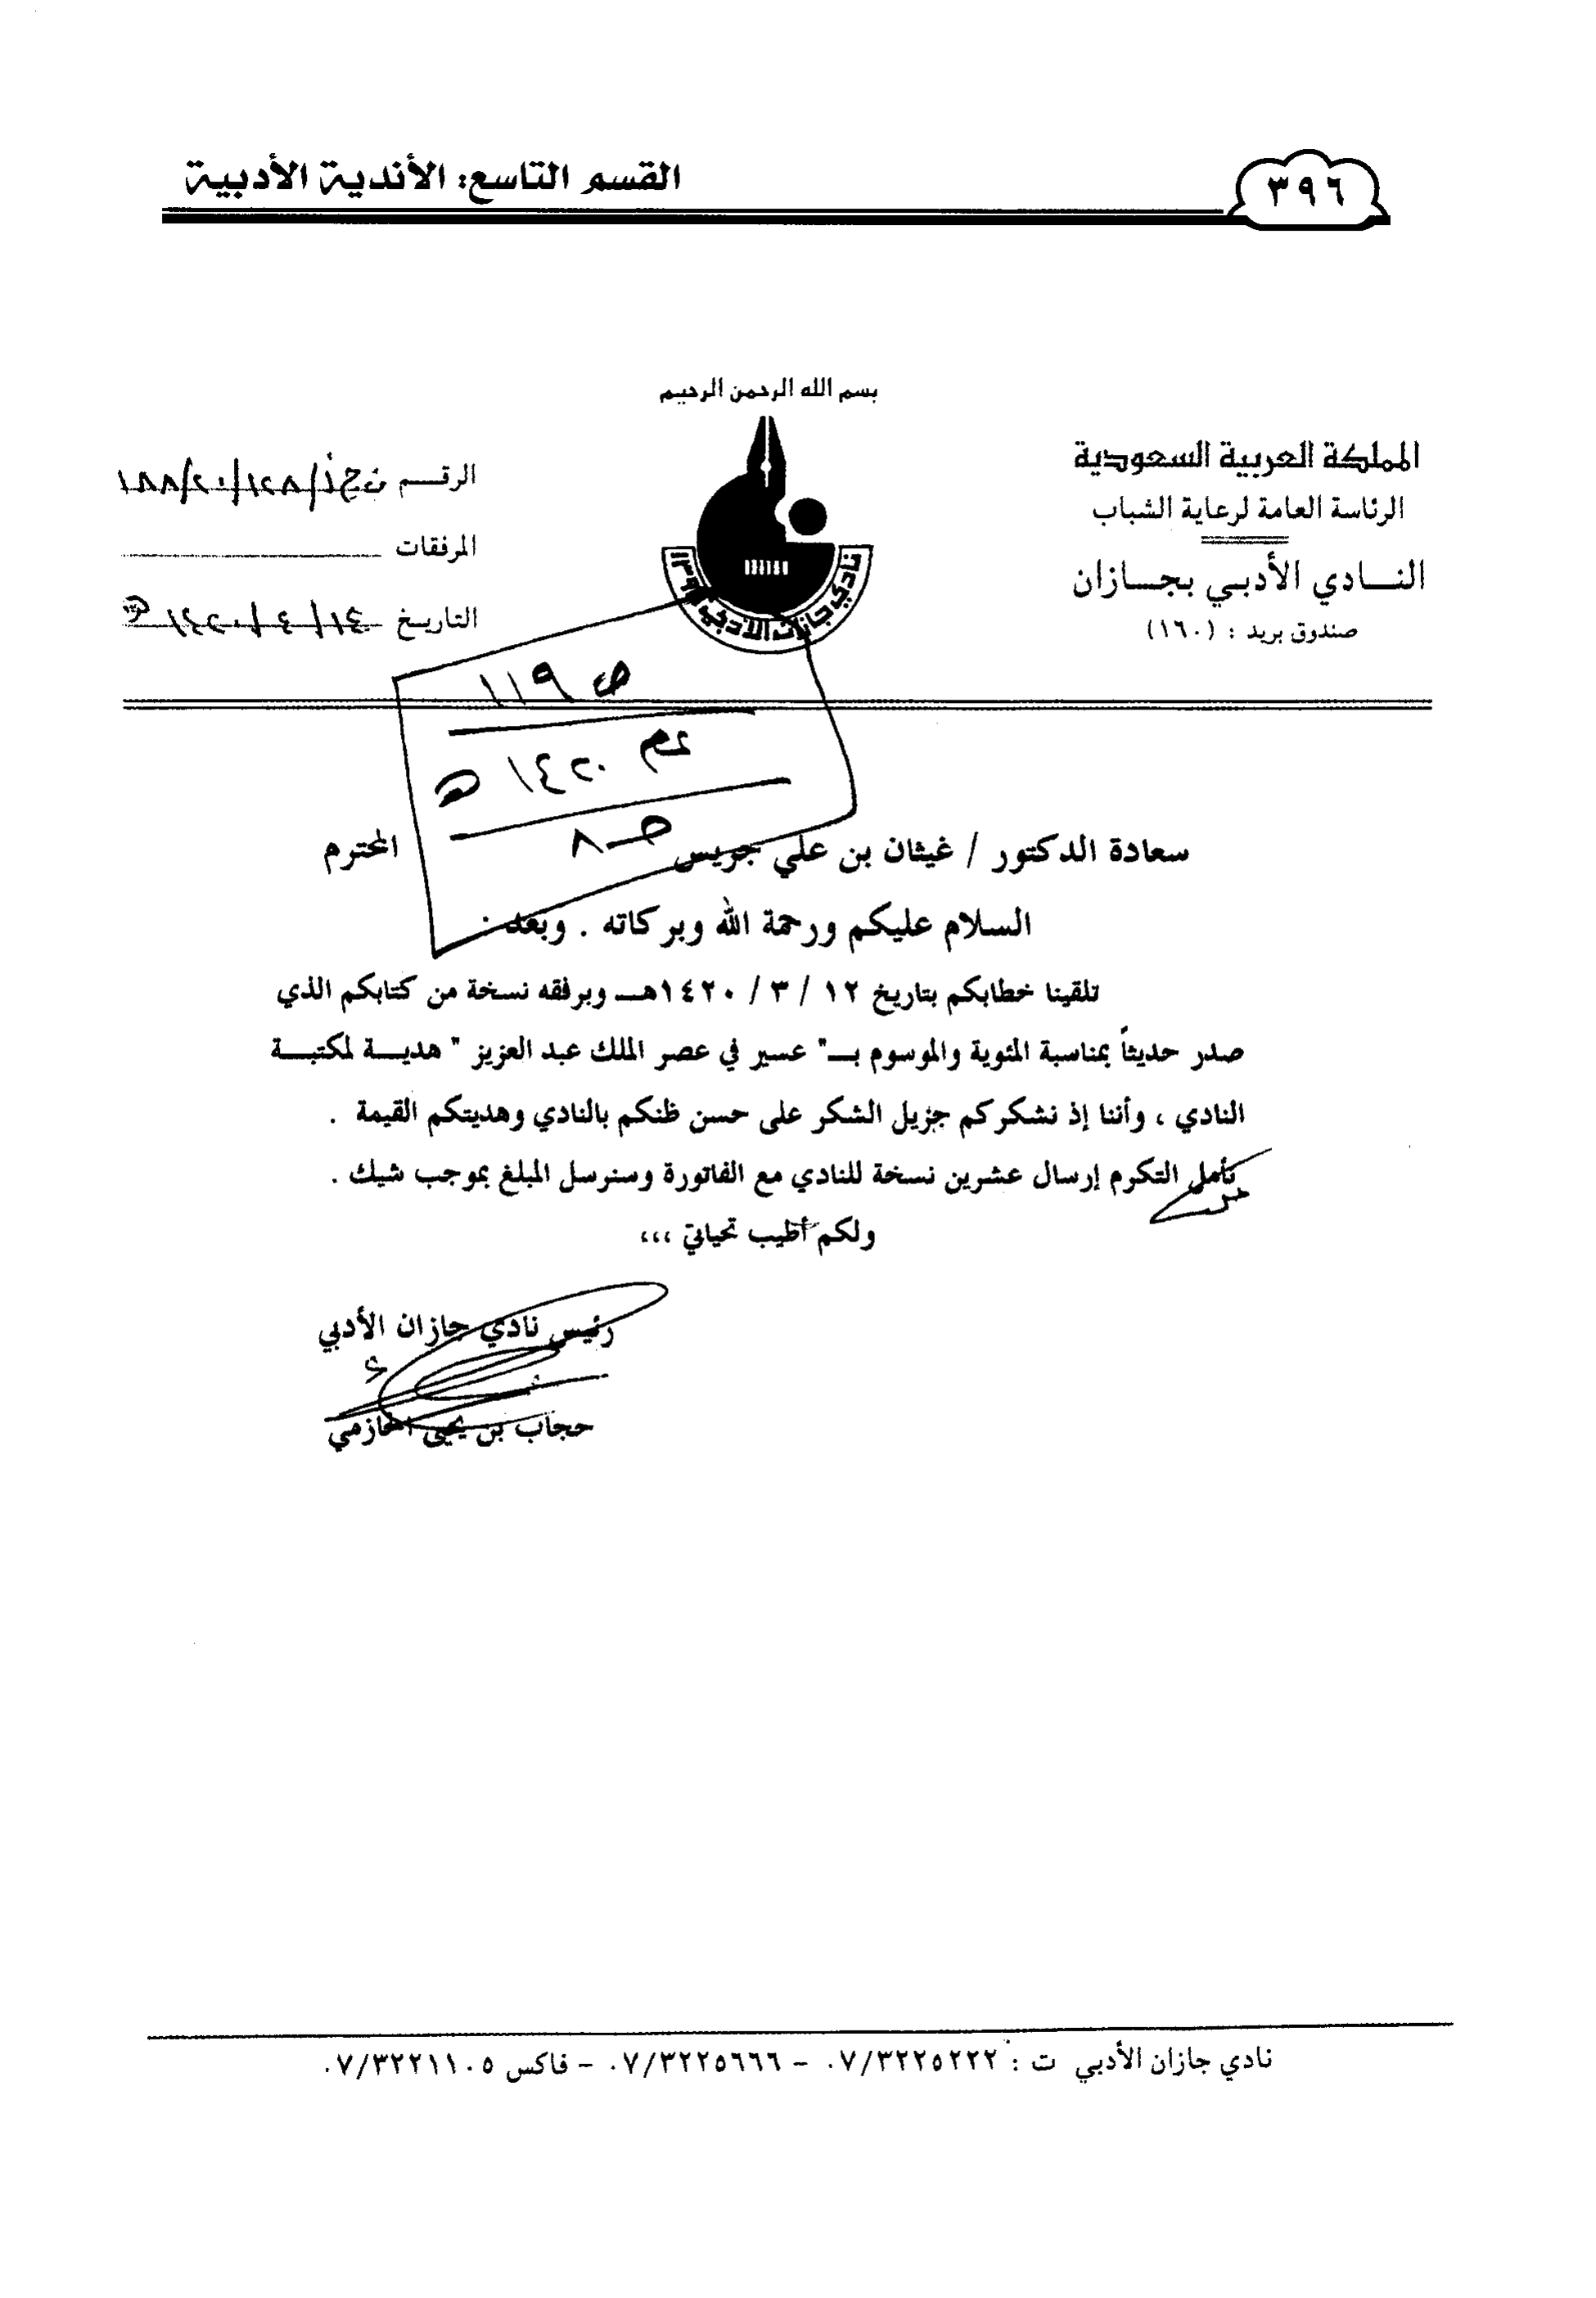 ٣٩٦
القسم التاسع: الأندية الأدبية
بسم الله الرحمن الرحيم
المملكة العربية السعودية
الرئاسة العامة لرعاية الشباب
النــادي الأدبـي بـجــازان
صندوق بريد : (١٦٠)
الرقــم
المرفقات
التاريـخ
نادي جازان الأدبي
ص ١١٩
عام ١٤٢٠ هـ
حـ ٨
سعادة الدكتور / غيثان بن علي جريس المحترم
السلام عليكم ورحمة الله وبركاته . وبعد :
تلقينا خطابكم بتاريخ ١٢ / ٣ / ١٤٢٠هــ وبرفقه نسخة من كتابكم الذي
صدر حديثاً بمناسبة المئوية والموسوم بــ" عسير في عصر الملك عبد العزيز " هديــة لمكتبــة
النادي ، وأننا إذ نشكركم جزيل الشكر على حسن ظنكم بالنادي وهديتكم القيمة .
نأمل التكرم إرسال عشرين نسخة للنادي مع الفاتورة وسنرسل المبلغ بموجب شيك .
ولكم أطيب تحياتي ،،،
رئيس نادي جازان الأدبي
حجاب بن يحيى الحازمي
نادي جازان الأدبي ت : ٠٧/٣٢٢٥٢٢٢ – ٠٧/٣٢٢٥٦٦٦ – فاكس ٠٧/٣٢٢١١٠٥